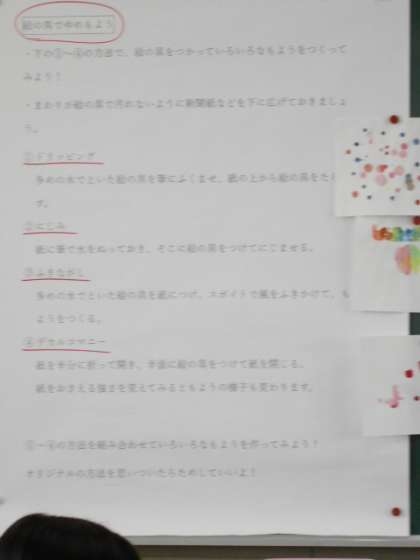 絵の具でゆめもよう
・下の①～④の方法で、絵の具をつかっていろいろなもようをつくって
みよう！
・まわりが絵の具で汚れないように新聞紙などを下に広げておきましょ
う。
①ドリッピング
多めの水でといた絵の具を筆にふくませ、紙の上から絵の具をた
す。
②にじみ
紙に筆で水をぬっておき、そこに絵の具をつけてにじませる。
③ふきながし
多めの水でといた絵の具を紙につけ、スポイトで風をふきかけて、も
ようをつくる。
④デカルコマニー
紙を半分に折って開き、片面に絵の具をつけて紙を閉じる。
紙をおさえる強さを変えてみるともようの様子も変わります。
①～④の方法を組み合わせていろいろなもようを作ってみよう！
オリジナルの方法を思いついたらためしていいよ！